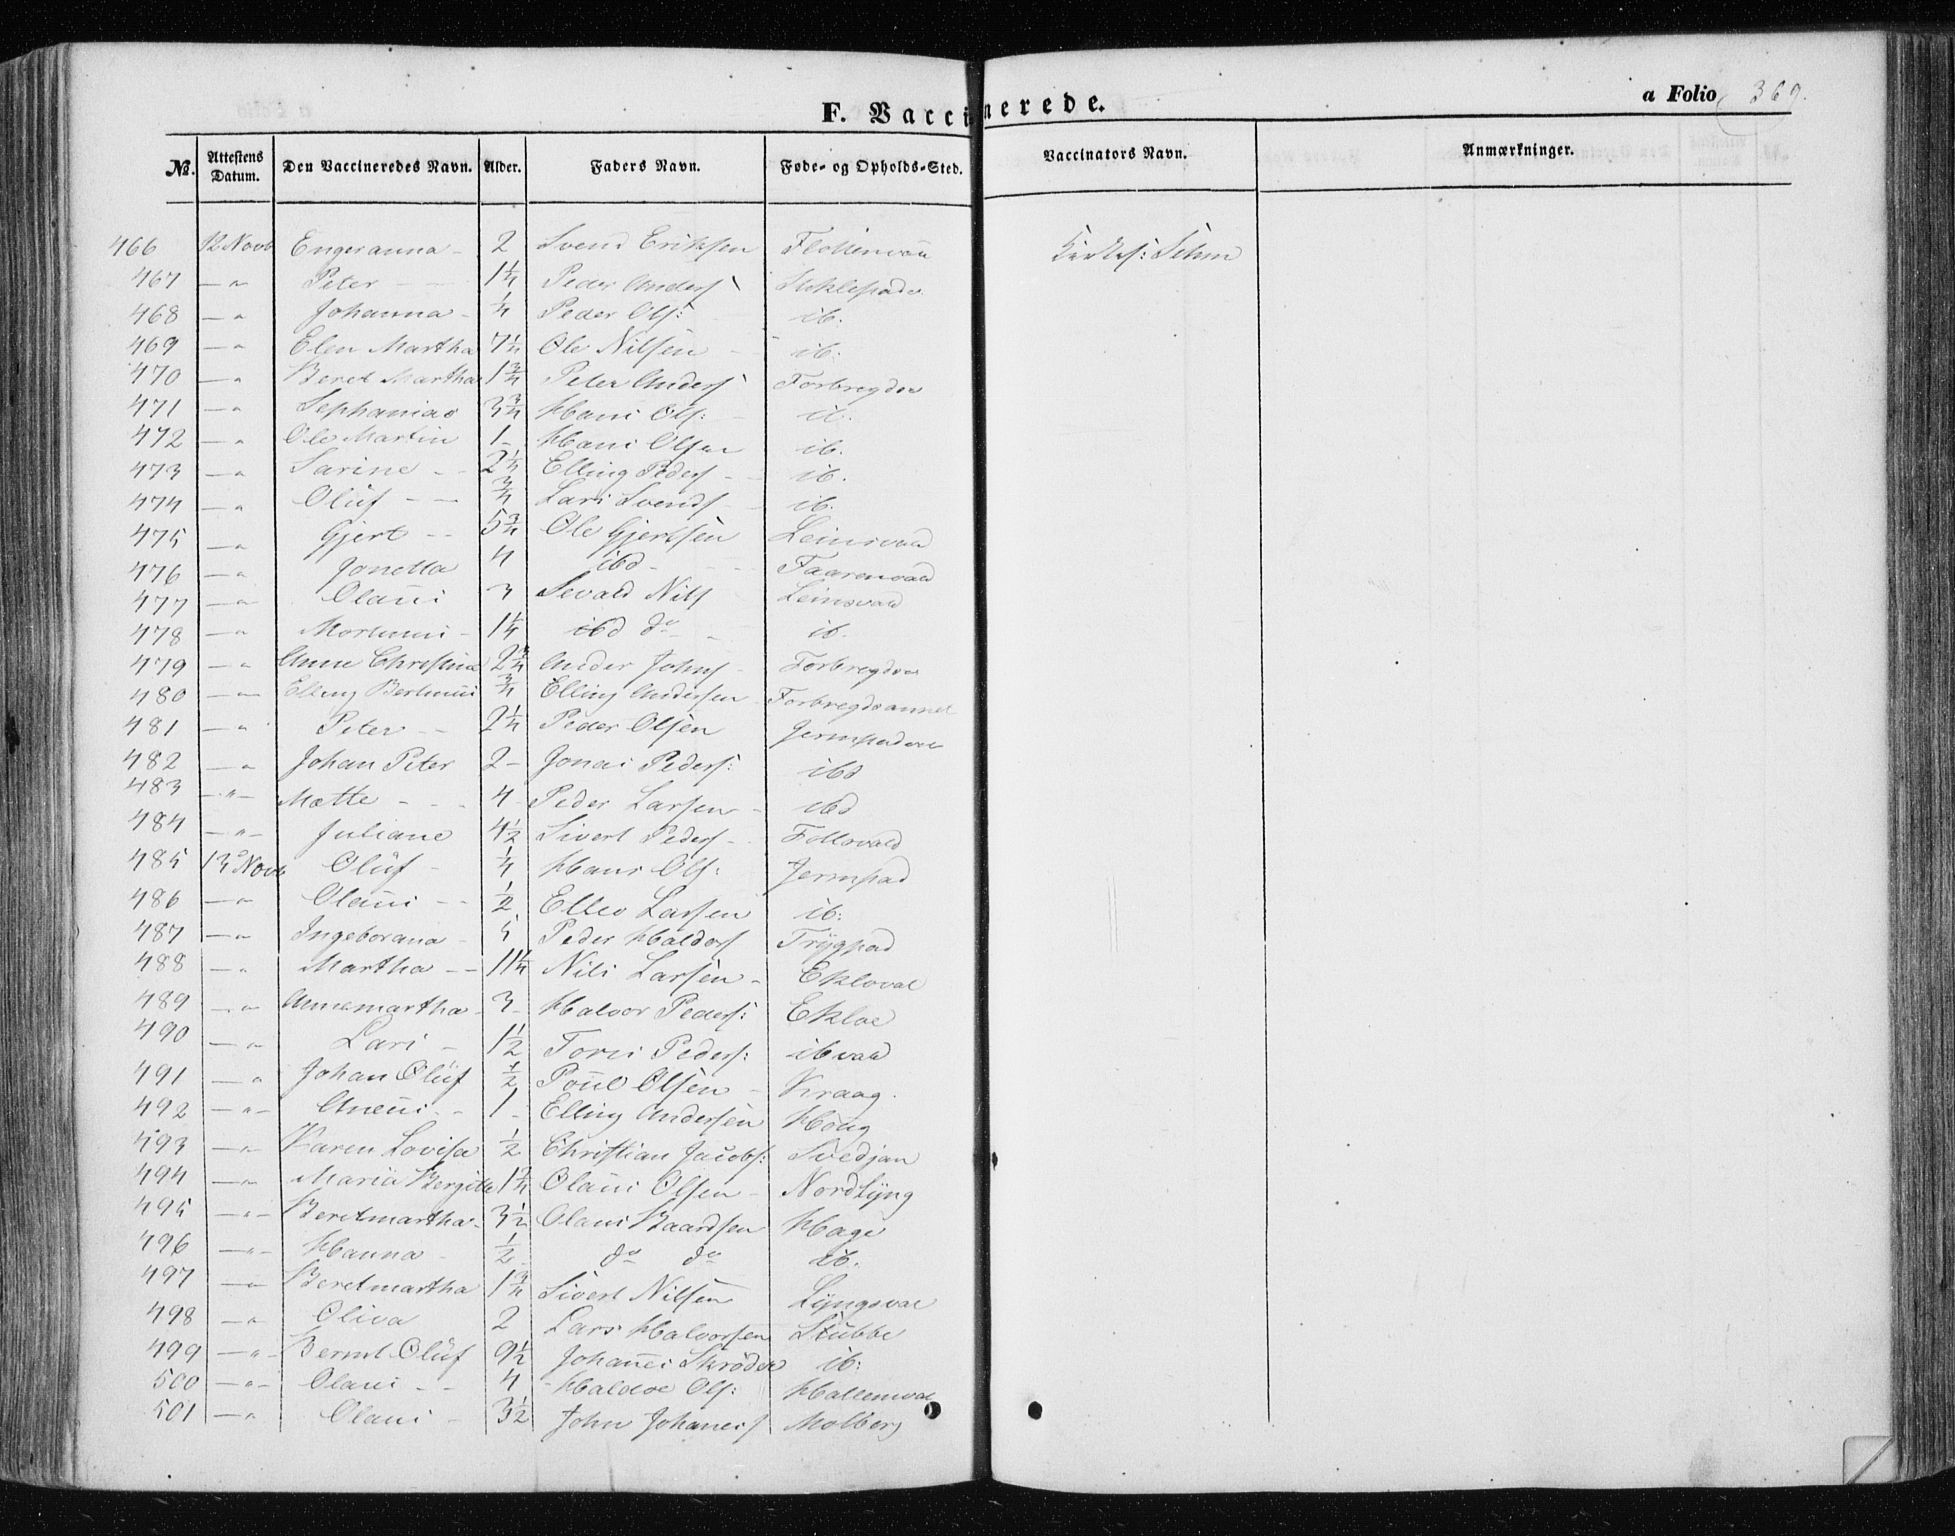 F. Vaccinerede.
a Folio 369.
No. Attestens Datum. Den Vaccineredes Navn. Alder. Faders Navn. Føde- og Opholds-Sted. Vaccinators Navn. Anmærkninger.
466 12 Novb Engeranna - 2 Svend Eriksen
467 — " Peter - - 1 1/4 Peder Anders Stiklestade
468 — " Johanna - 1/4 Peder Ols: ib.
469 — " Elen Martha 7 1/4 Ole Nilsen - ib.
470 — " Beret Martha 1 3/4 Peter Anders Forbregden
471 — " Sephanias 3 3/4 Hans Ols: - ib.
472 — " Ole Martin 1 - Hans Olsen ib.
473 — " Sarine - - 2 1/4 Elling Peders - - ib.
474 — " Oluf - — 3/4 Lars Svends - ib.
475 — " Gjert - - 5 3/4 Ole Gjertsen Leinsvald
476 — " Jonetta 4 ibd - - - Faarenvald
477 — " Olaus 3 Sevald Nils Leinsvald
478 — " Mortinus - 1 1/4 ibd do - - ib.
479 — " Anne Christina 2 3/4 Andor Johns - Forbregden
480 — " Elling Bertinus 3/4 Elling Andersen Forbregdsannet
481 — " Peter - - 2 1/4 Peder Olsen
482 — " Johan Peter 2 - Jonas Peders: ibd
483 — " — Mætte - - - 4 - Peder Larsen - ibd
484 — " — Juliane 4 1/2 Sivert Peders - Follovald
485 13 Novb Oluf - 1/4 Hans Ols: Jermstad
486 — " Olaus - - 1/2 Elleo Larsen ib:
487 — " Ingeborana - 5 Peder Haldors Trygstad
488 — " Martha - - 11 1/4 Nils Larsen - Ekloval
489 — " Annemartha - 3 - Halvor Peders: Ekloe
490 — " Lars - 1 1/2 Tores Peders: ibvald
491 — " Johan Oluf 1/2 Poul Olsen - Kraag.
492 — " — Aneus - - 1 - Elling Andersen Houg
493 — " Karen Lovisa 1/2 Christian Jacobs: Svedjan
494 — " Maria Bergitte 1 3/4 Olaus Olsen - Nordlyng
495 — " - Beretmartha - 3 1/2 Olaus Baardsen Hage
496 — " - Hanna - 1/2 do do ib.
497 — " Beretmartha 1 3/4 Sivert Nilsen Lyngsval
498 — " Oliva 2 Lars Halvorsen Stubbe
499 — " - Bernt Oluf 9 1/2 Johanes Skrøder ib:
500 — " — Olaus - - 4 - Haldoe Ols: Hallemval
501 — " Olaus - 3 1/2 John Johanes Molberg